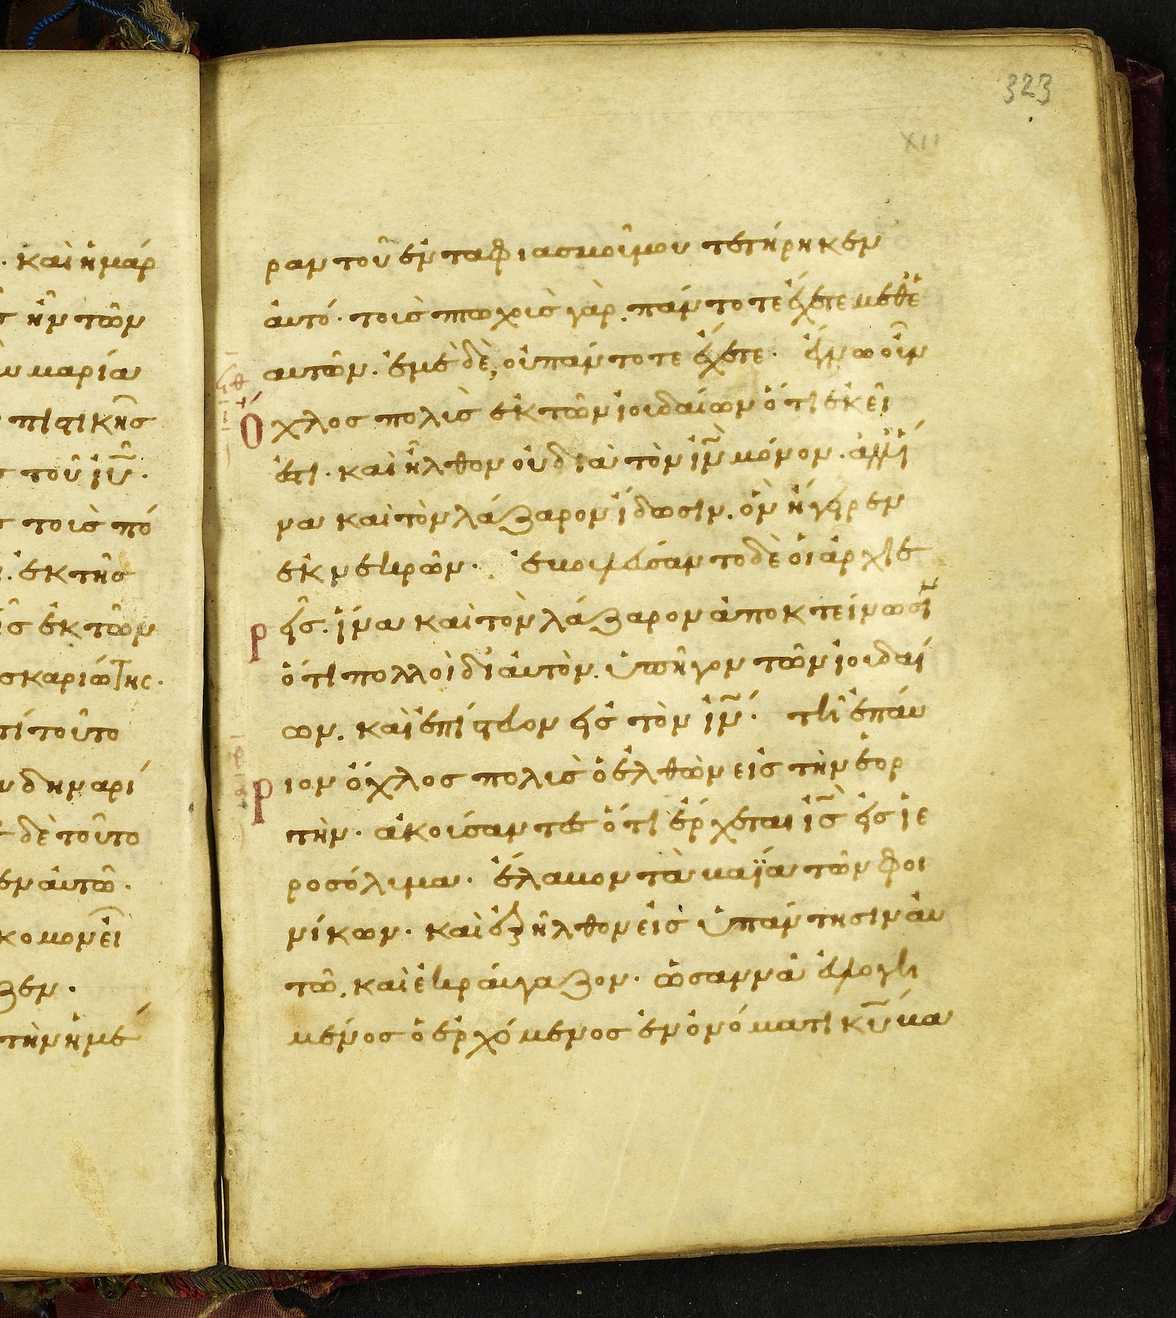 323
XII
· καὶ ἡ μάρ
ἦν τῶν
μαρία
πιστικῆς
τοῦ ἰυ̅ ·
τοὺς πό
· ἐκ τῆς
ἐκ τῶν
σκαριώτης ·
τί τοῦτο
δηναρί
δὲ τοῦτο
ἐν αὐτῶ ·
κόμον εἶ
ζεν ·
τὴν ἡμέ
ραν τοῦ ἐνταφιασμοῦ μου τετήρηκεν
ἀυτό · τοὺς πτωχοὺς γὰρ πάντοτε ἔχετε μεθ ἑ
αυτῶν . ἐμὲ δὲ, οὐ πάντοτε ἔχετε · ἔγνω οὖν
ὄχλος πολὺς ἐκ τῶν ἰουδαίων ὅτι ἐκεῖ
ἐστι · καὶ ἦλθον οὐ διὰ τὸν ἰν̅ μόνον · ἀλλ ἵ
να καὶ τὸν λάζαρον ἴδωσιν . ὃν ἤγειρεν
ἐκ νεκρῶν · ἐβουλεύσαντο δὲ οἱ ἀρχιε
ρεῖς . ἵνα καὶ τὸν λάζαρον ἀποκτείνωσιν
ὅτι πολλοὶ δι αὐτὸν . ὑπῆγον τῶν ἰουδαί
ων . καὶ ἐπίστευον εἰς τὸν ἰν̅ · τῆ ἐπαύ
ριον ὄχλος πολὺς ὁ ἐλθὼν εἰς τὴν ἑορ
τὴν · ἀκούσαντες ὅτι ἔρχεται ἰς̅ εἰς ἱε
ροσόλυμα · ἔλαβον τὰ βαΐα τῶν φοι
νίκων · καὶ ἐξῆλθον εἰς ὑπάντησιν ἀυ
τῶ . καὶ ἐκραύγαζον · ὡσαννὰ ἐυλογη
μένος ὁ ἐρχόμενος ἐν ὀνόματι κυ̅ βα